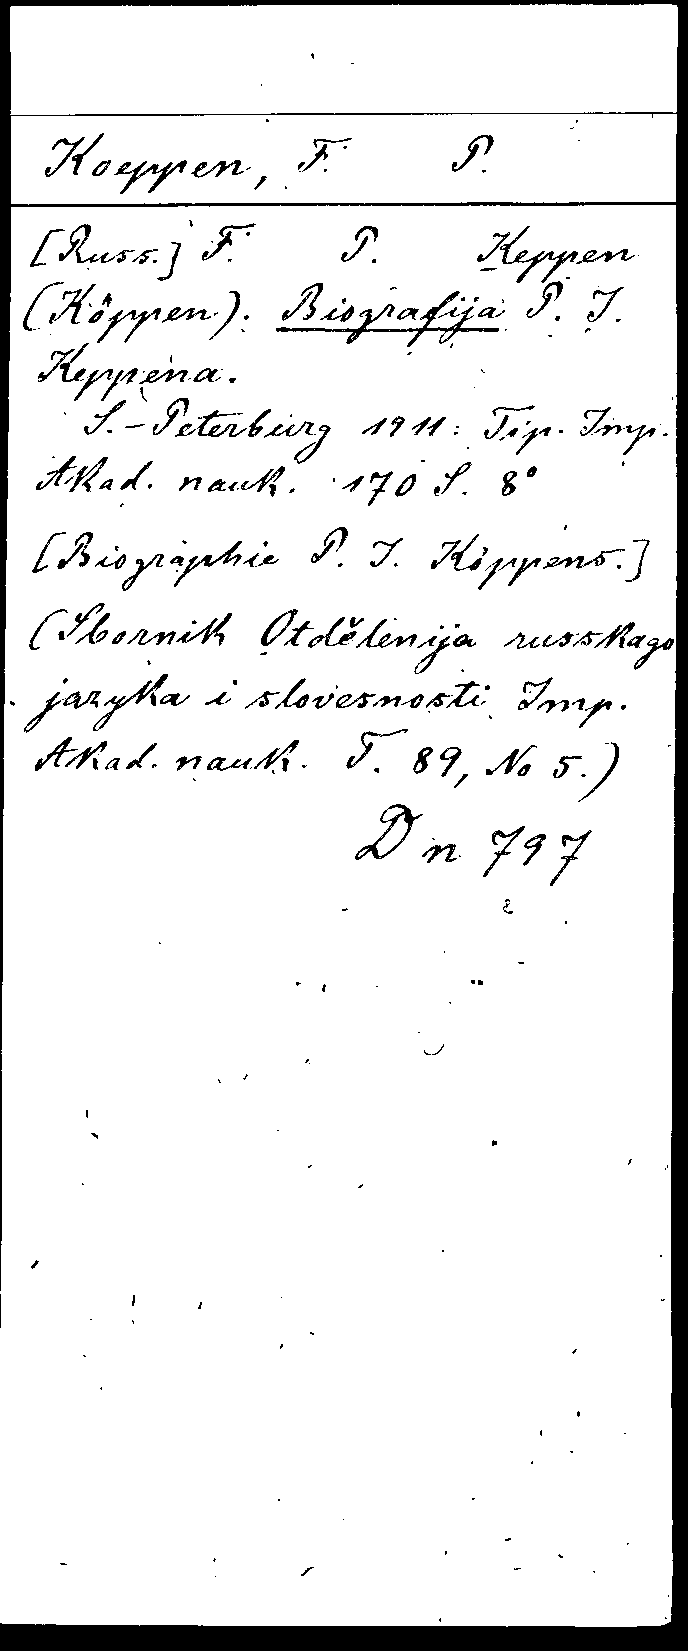 Koeppen, F. P.
[Russ.] F. P. Keppen
(Köppen). Biografija P. I.
Keppena.
S.-Peterburg 1911: Tip. Imp.
Akad. nauk. 170 S. 8°
[Biographie P. I. Köppens.]
(Sbornik Otdělenija russkago
jazyka i slovesnosti Imp.
Akad. nauk. T. 89, No 5.)
Dn 797